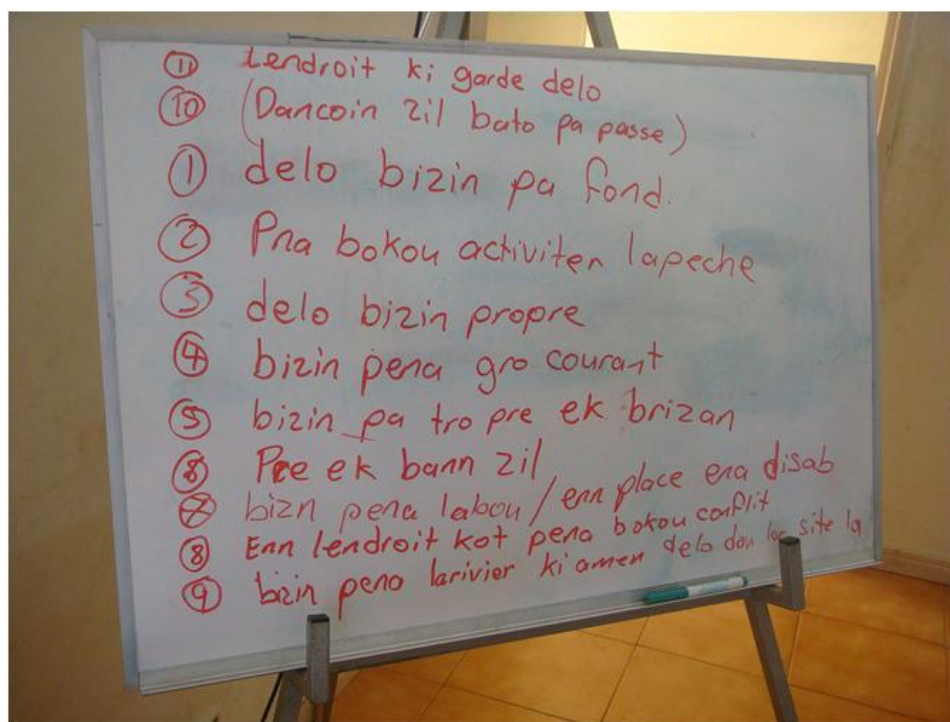 ⑪ Lendroit ki garde delo
⑩ (Dancoin zil bato pa passe)
① delo bizin pa fond.
② Pna bokou activiter lapeche
③ delo bizin propre
④ bizin pena gro courant
⑤ bizin pa tro pre ek brizan
⑥ Pre ek bann zil
⑦ bizn pena labou / enn place ena disab
⑧ Enn lendroit kot pena bokou conflit
⑨ bizin pena larivier ki amen delo dan site la